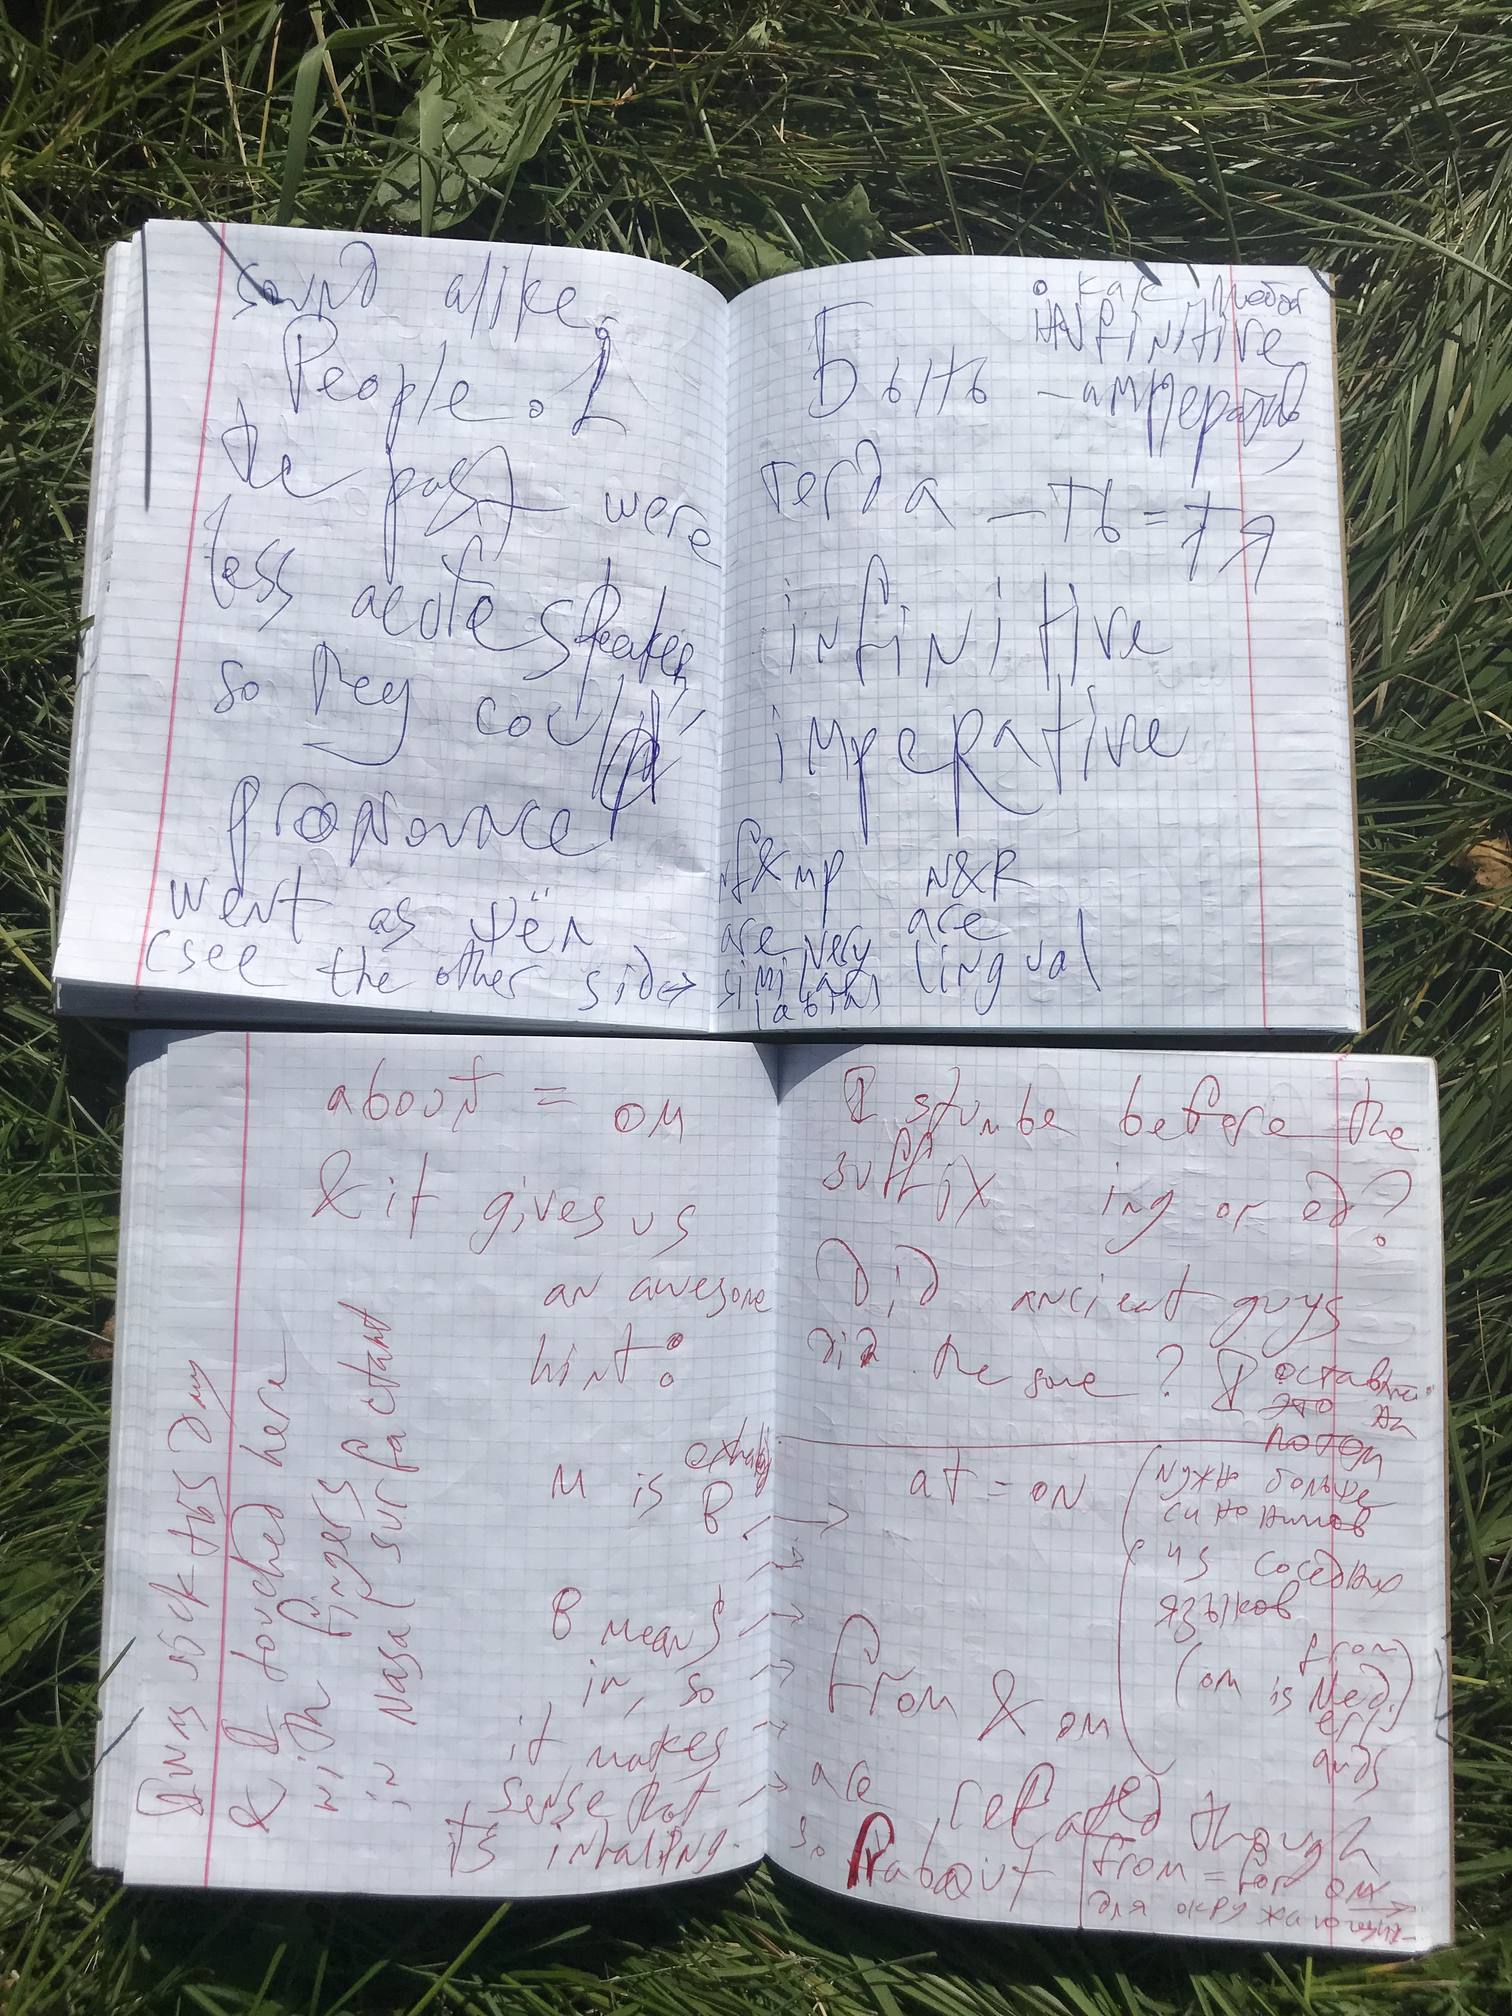 sound alike.
People. I
the past were
less acute speaker,
so they could
pronounce
went as шёл
(see the other side →
• как любой
INfinitive
Быть - императив,
тогда -ть = ты
infinitive
imperative
nf & mp
are very
similar
labials
N&R
are
lingual
about = om
& it gives us
an awesome
hint:
M is exhaling
B
B means
in, so
it makes
sense that
it's inhaling.
& I touched here
with fingers
in nasal surfactant
I stumbe before the
suffix ing or ed?
Did ancient guys
did the same? I оставлю
это на
потом
at = on
(нужно больше
синонимов
из соседних
языков
(om is from
Ned
erl
ands)
from & om
are related though
so about
from = for om
для окружающих